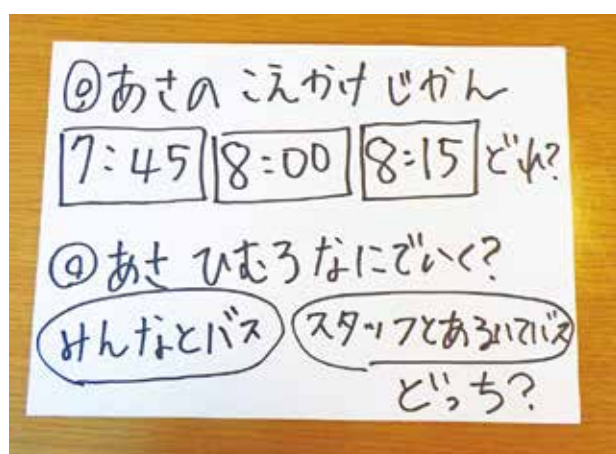 ◎あさの こえかけ じかん
7:45 8:00 8:15 どれ?
◎あさ ひむろ なにでいく?
みんなとバス スタッフとあるいてバス
どっち?